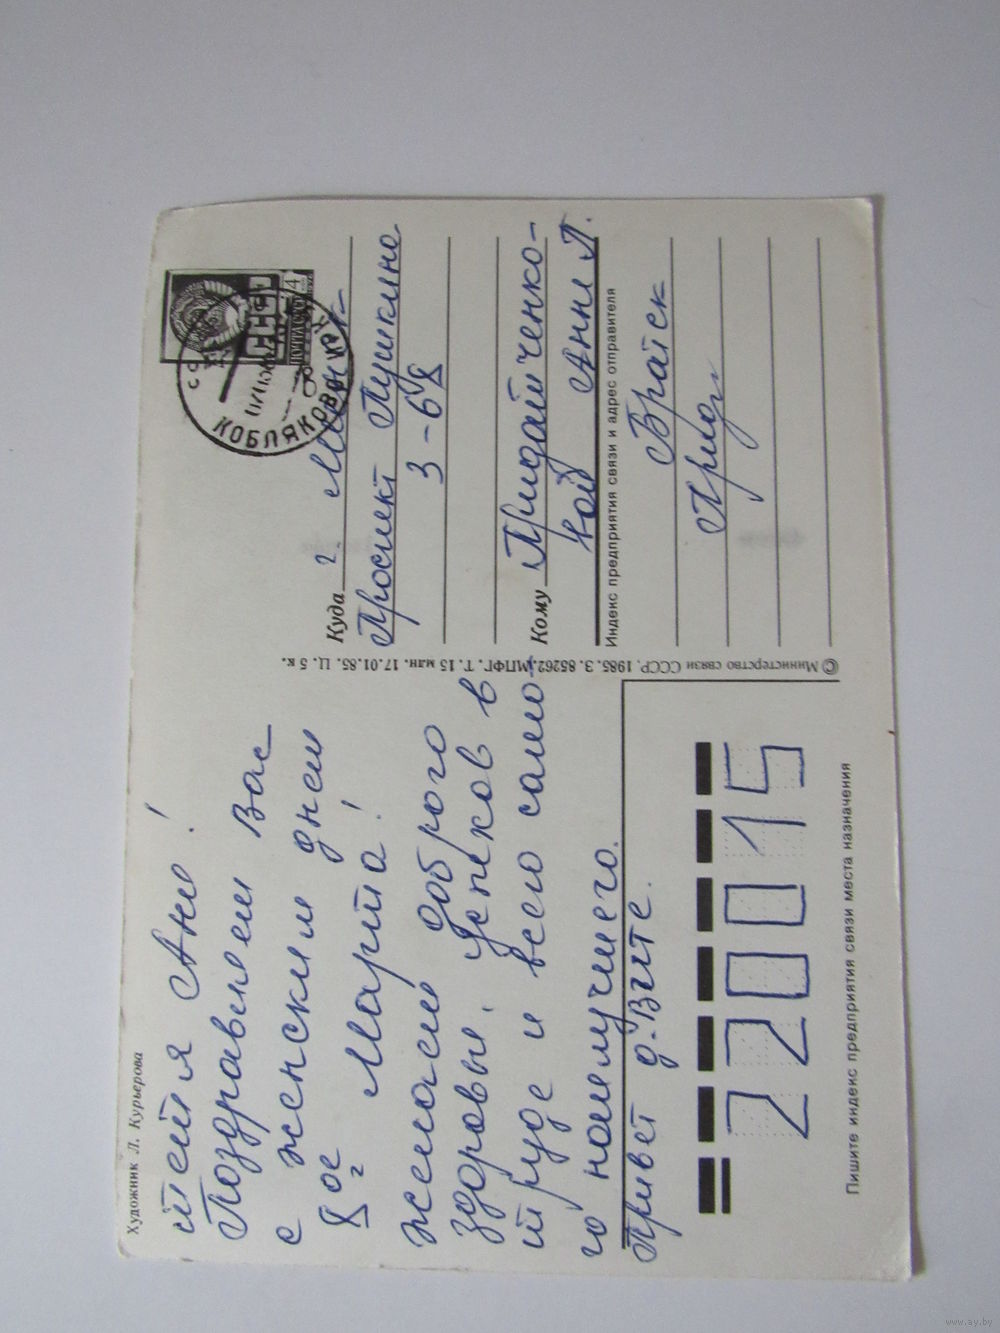 Художник Л. Курьерова
тётя Аня!
Поздравляем Вас
с женским днем
8ое Марта!
желаем доброго
здоровья. Успехов в
труде и всего само-
го наилучшего.
Привет д. Вите.
220015
Пишите индекс предприятия связи места назначения
© Министерство связи СССР, 1985. З. 85262. МПФГ. Т. 15 млн. 17.01.85. Ц. 5 к.
СССР
ПОЧТА СССР
4
КОБЛЯКОВО
Куда г. Минск
Проспект Пушкина
3-68
Кому Придатченко-
вой Анне П.
Индекс предприятия связи и адрес отправителя
Братск
www.ay.by